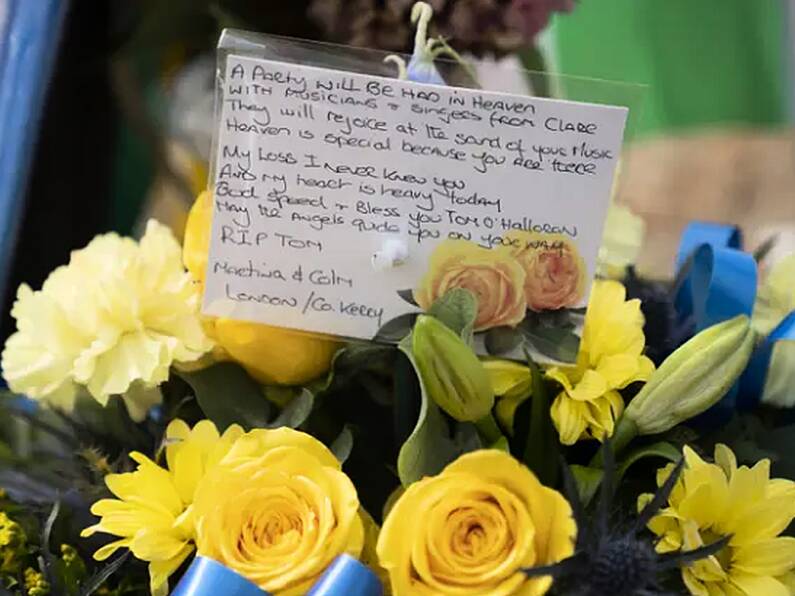 A Party WILL BE HAD IN HEAVEN
WITH MUSICIANS + SINGERS FROM CLARE
They will rejoice at the sound of your Music
HEAVEN is special because you ARE THERE
My Loss I NEVER KNEW YOU
AND My heart is heavy today
God Speed + Bless you TOM O'HALLORAN
May the Angels guide you on your way
RIP TOM
Martina & Colm
LONDON / Co. Kerry